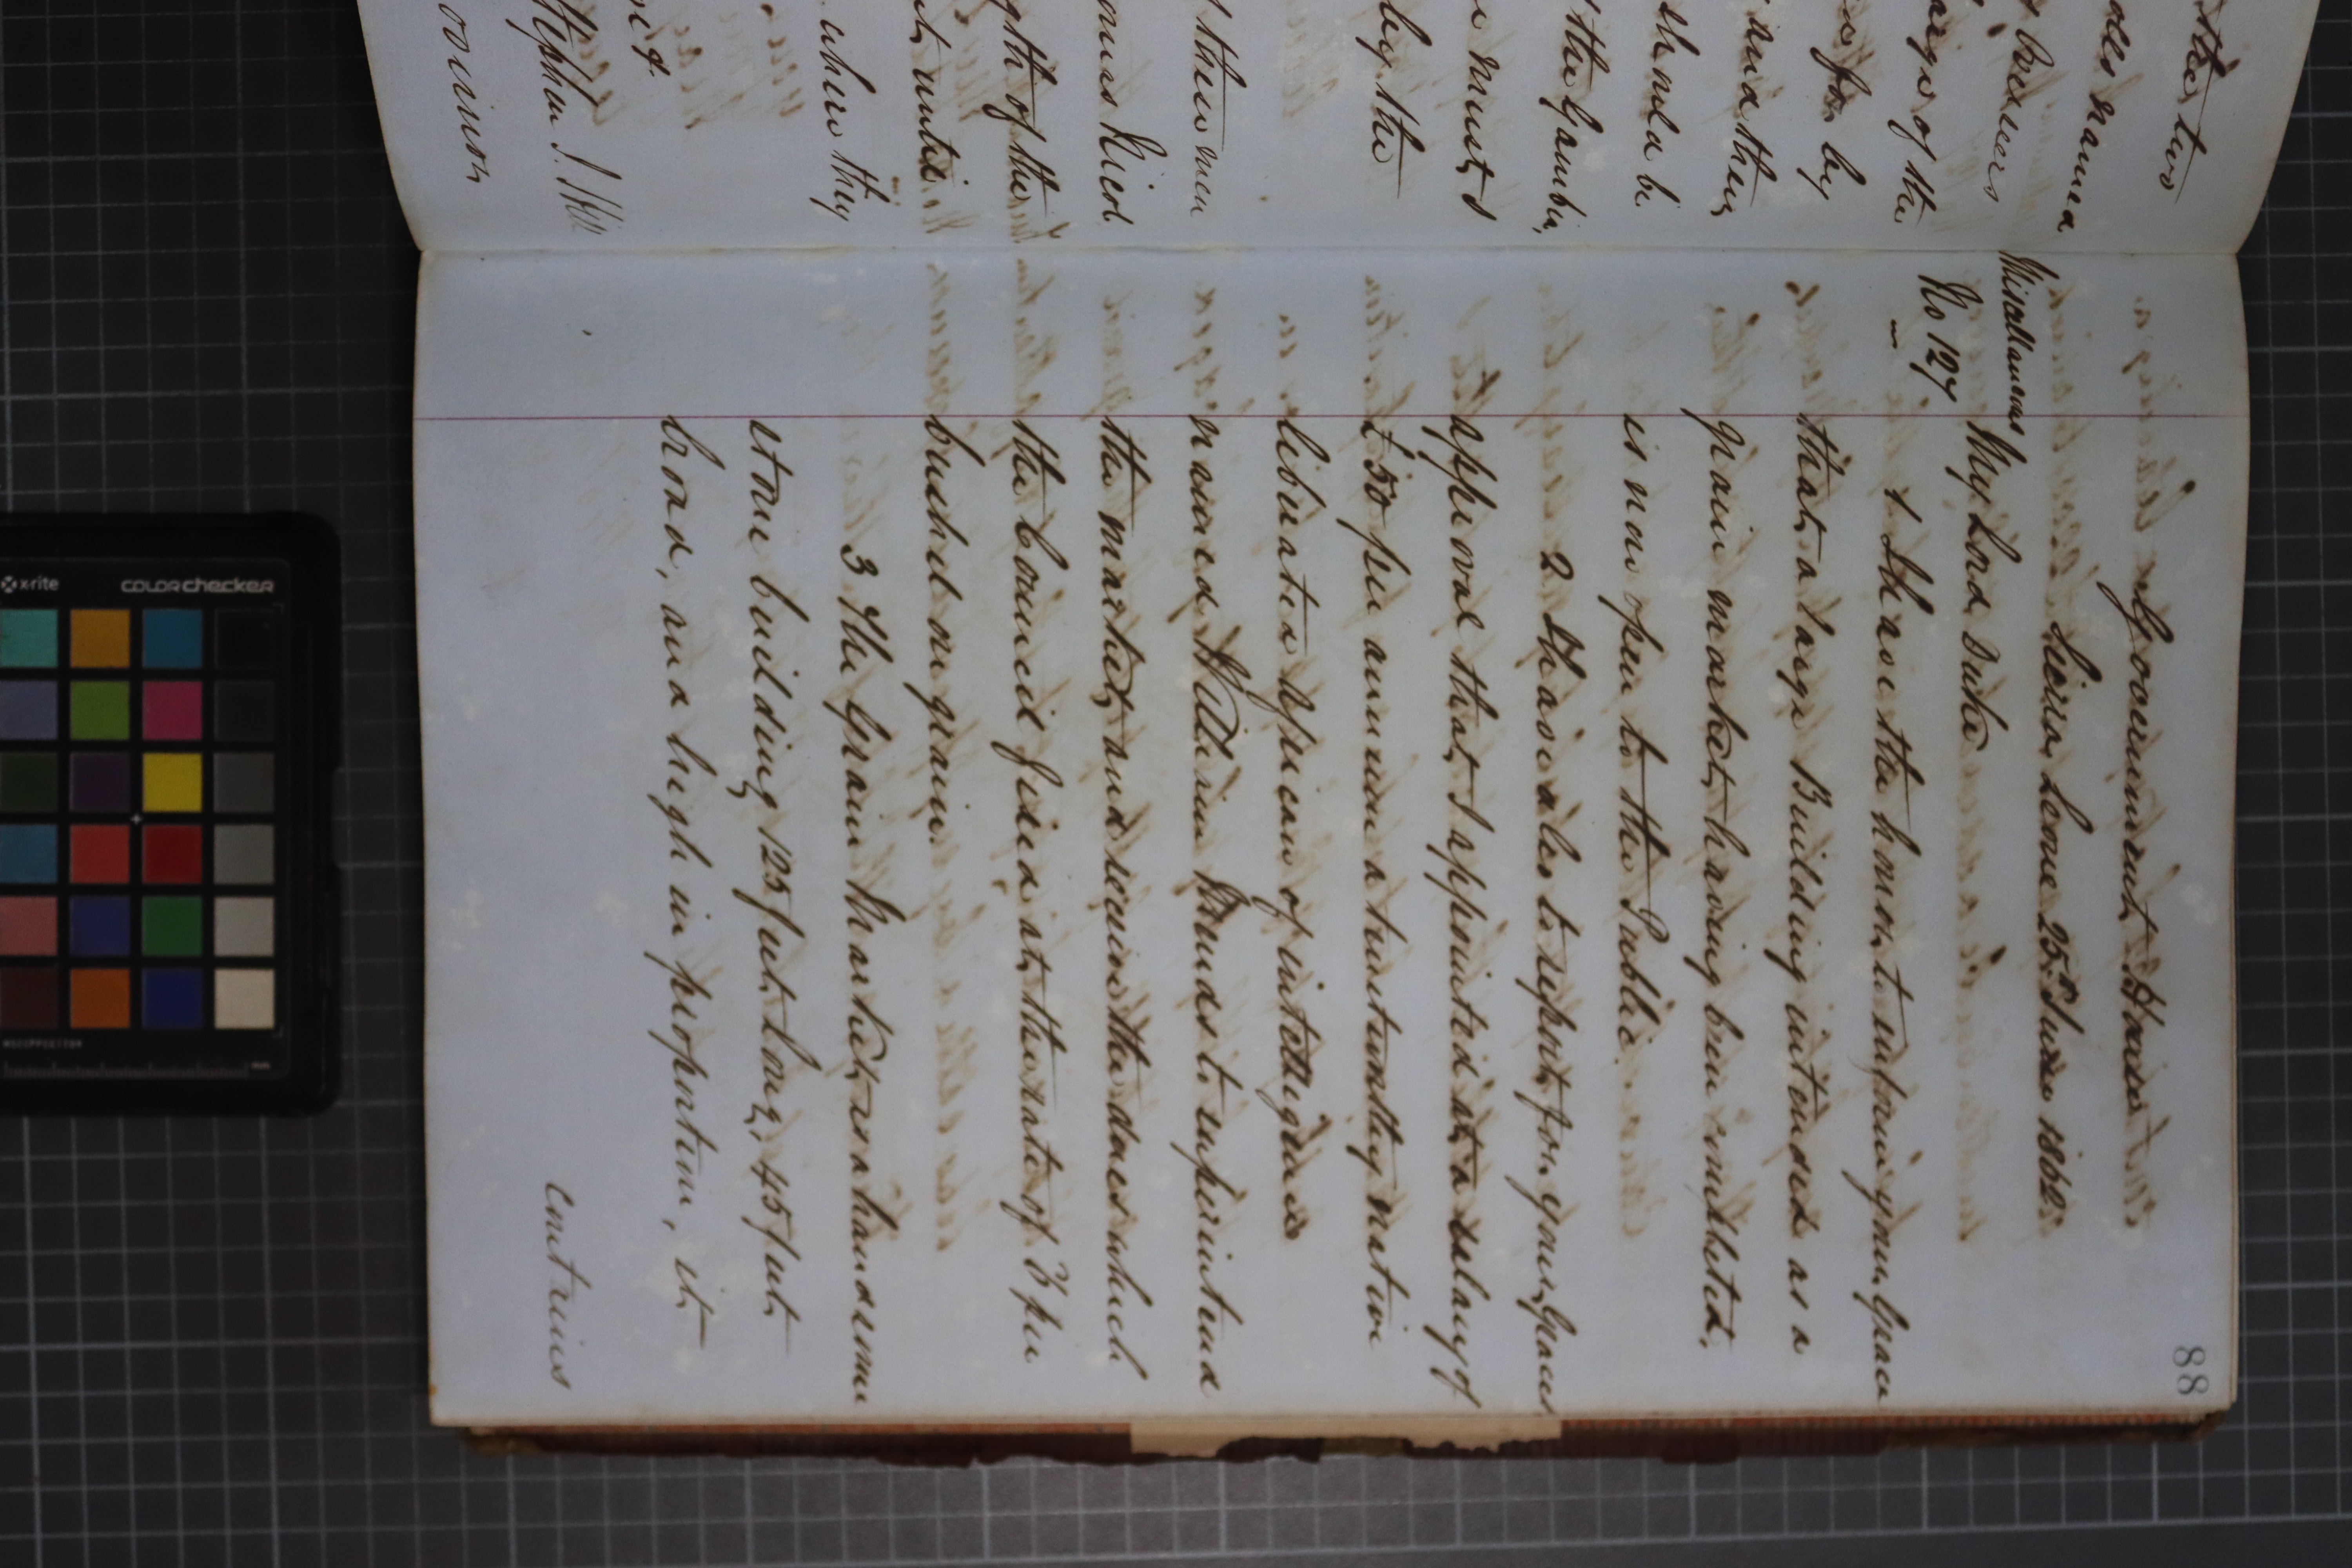 the two
oles named
by princes
arges of the
for by
and they
should be
the Gambia,
ments
by the
these men
Nicol
gth of the
until
where they
Stephen J. Hill
88
Government House
Sierra Leone 25th June 1862.
Miscellaneous
No 127
My Lord Duke
1 I have the honor to inform your Grace
that a large Building intended as a
grain market having been completed,
is now open to the Public.
2 I have also to report for your Grace's
approval that I appointed at a salary of
£50 per annum a trustworthy native
liberated African of intelligence
named William to superintend
the market, and receive the dues which
the Council fixed at the rate of per
bushel on grain.
3 The Grain Market is a handsome
stone building 125 feet long, 45 feet
broad, and high in proportion, it
contains